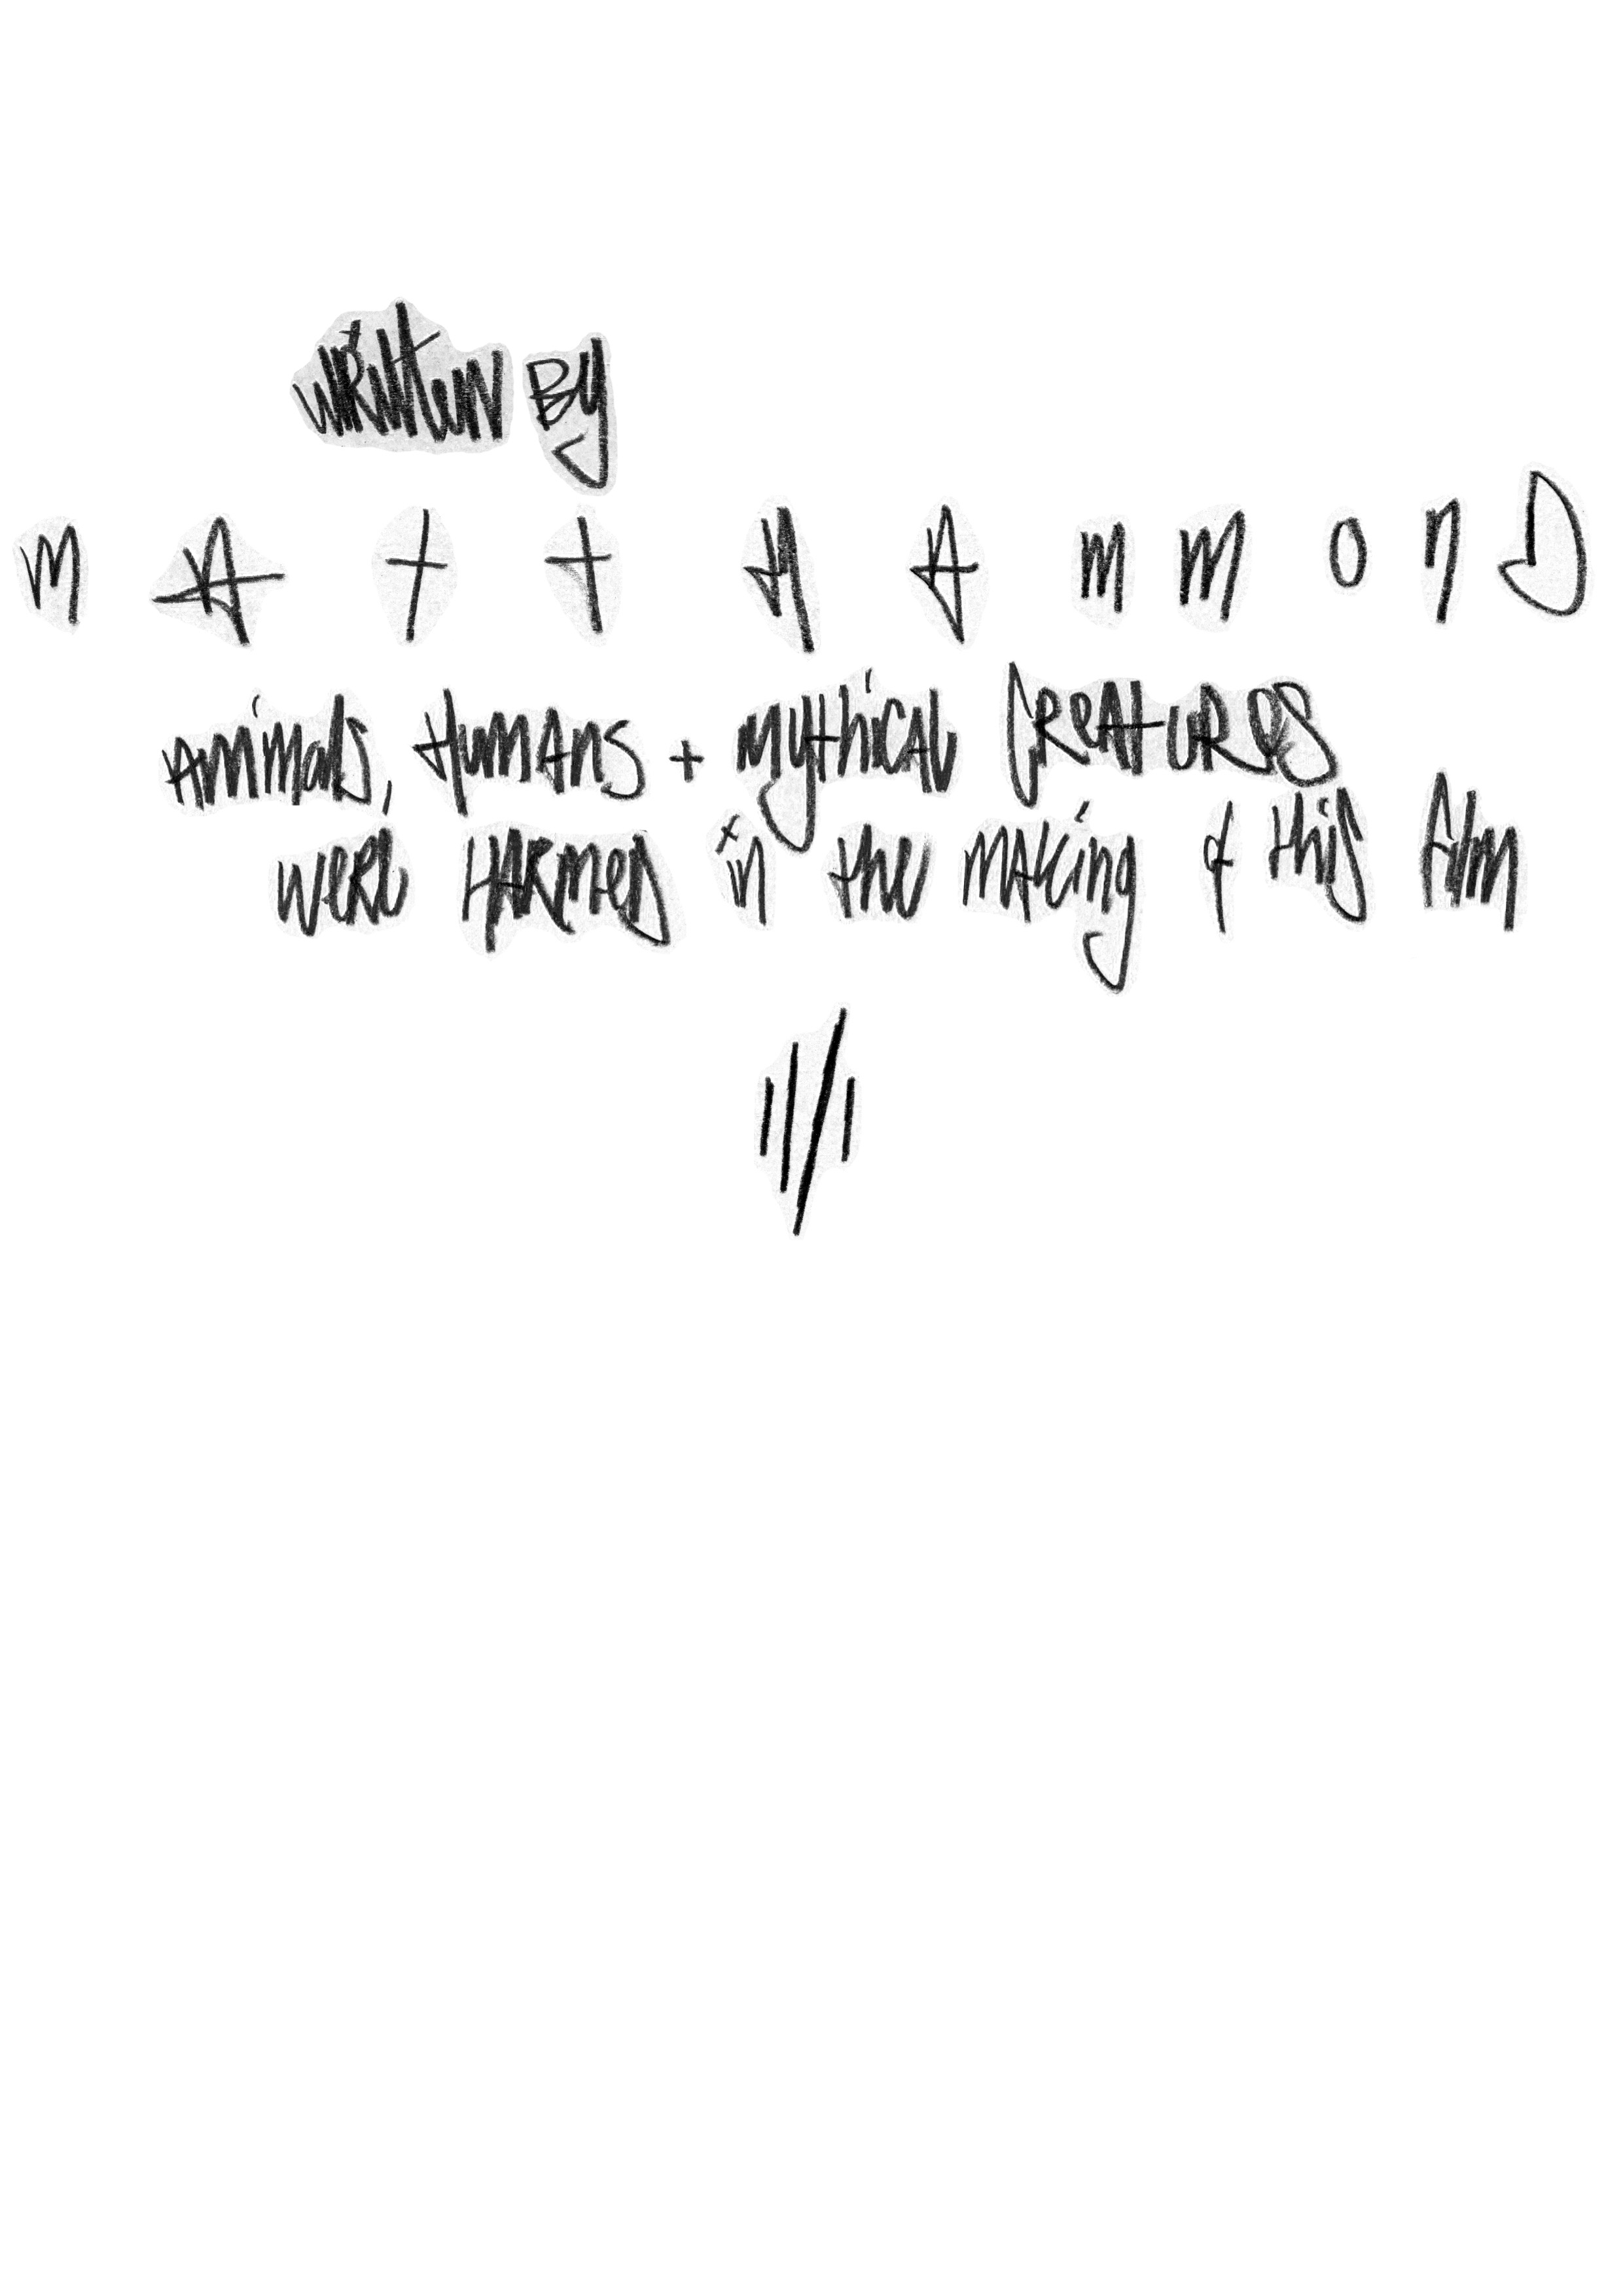 WRitten By
mAtt HAmmonD
Animals, HumAns + mythicAl CREATURES
WeRe HARmeD in the mAKing of this film